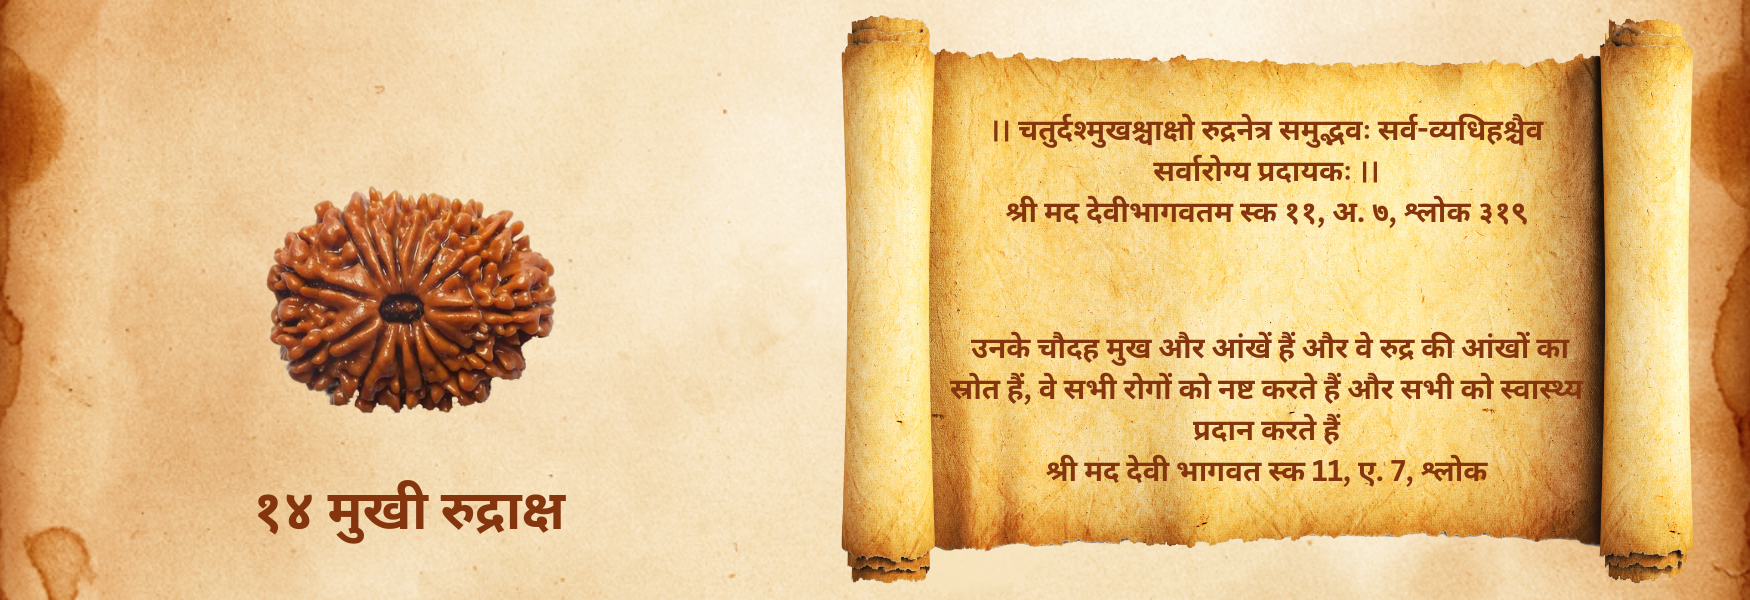 ।। चतुर्दश्मुखश्चाक्षो रुद्रनेत्र समुद्भवः सर्व-व्यधिहश्चैव
सर्वारोग्य प्रदायकः ।।
श्री मद देवीभागवतम स्क ११, अ. ७, श्लोक ३१९
उनके चौदह मुख और आंखें हैं और वे रुद्र की आंखों का
स्रोत हैं, वे सभी रोगों को नष्ट करते हैं और सभी को स्वास्थ्य
प्रदान करते हैं
श्री मद देवी भागवत स्क 11, ए. 7, श्लोक
१४ मुखी रुद्राक्ष